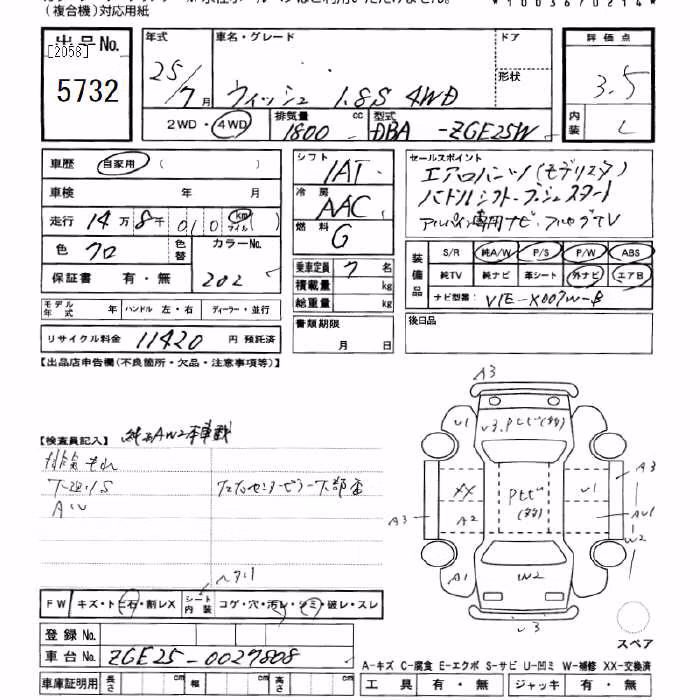 (複合機)対応用紙
出品No.
[2058]
5732
年式 車名・グレード ドア
25/7月 ウィッシュ 1.8S 4WD 形状
2WD・4WD 排気量 1800 cc 型式 DBA -ZGE25W
評価点
3.5
内装 C
車歴 自家用 ( )
車検 年 月
走行 14万8千010 km マイル
色 クロ 色替 カラーNo. 202
保証書 有・無
モデル年式 年 ハンドル 左・右 ディーラー・並行
リサイクル料金 11420 円 預託済
シフト IAT
冷房 AAC
燃料 G
乗車定員 7 名
積載量 kg
総重量 kg
書類期限
月 日
セールスポイント
エアロパーツ(モデリスタ)
パドルシフト・プッシュスタート
アルパイン専用ナビ・フルセグTV
装備品 S/R 純A/W P/S P/W ABS
純TV 純ナビ 革シート 外ナビ エアB
ナビ型番 VIE-X007W-B
後日品
【出品店申告欄(不良箇所・欠品・注意事項等)】
【検査員記入】 純正AW2本車載
排気もれ
下廻りS
AW
FW キズ・トビ石・割レX シート内装 コゲ・穴・汚レ・シミ・破レ・スレ
登録No.
車台No. ZGE25-0027808
車庫証明用 長さ cm 幅 cm 高さ cm
A3
U1
U3 Pとび(タタ)
XX
A2
Pとび
(タタ)
U1
A3
A3
AU1
W2
A1
W2
U3
スペア
A-キズ C-腐食 E-エクボ S-サビ U-凹ミ W-補修 XX-交換済
工具 有・無 ジャッキ 有・無